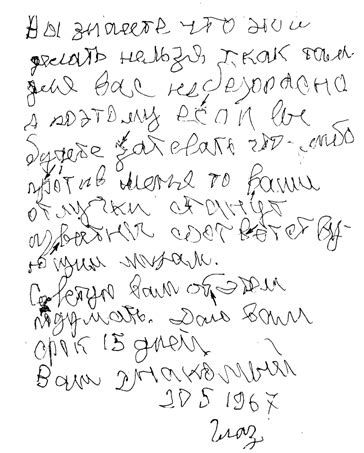 Вы знаете что это
делать нельзя, так как там
для вас небезопасно
а поэтому если вы
будете затевать что-либо
против меня то ваши
отлучки станут
известны соответству-
ющим
Советую вам об этом
подумать. Даю вам
срок 15 дней
Ваш знакомый
20 5 1967